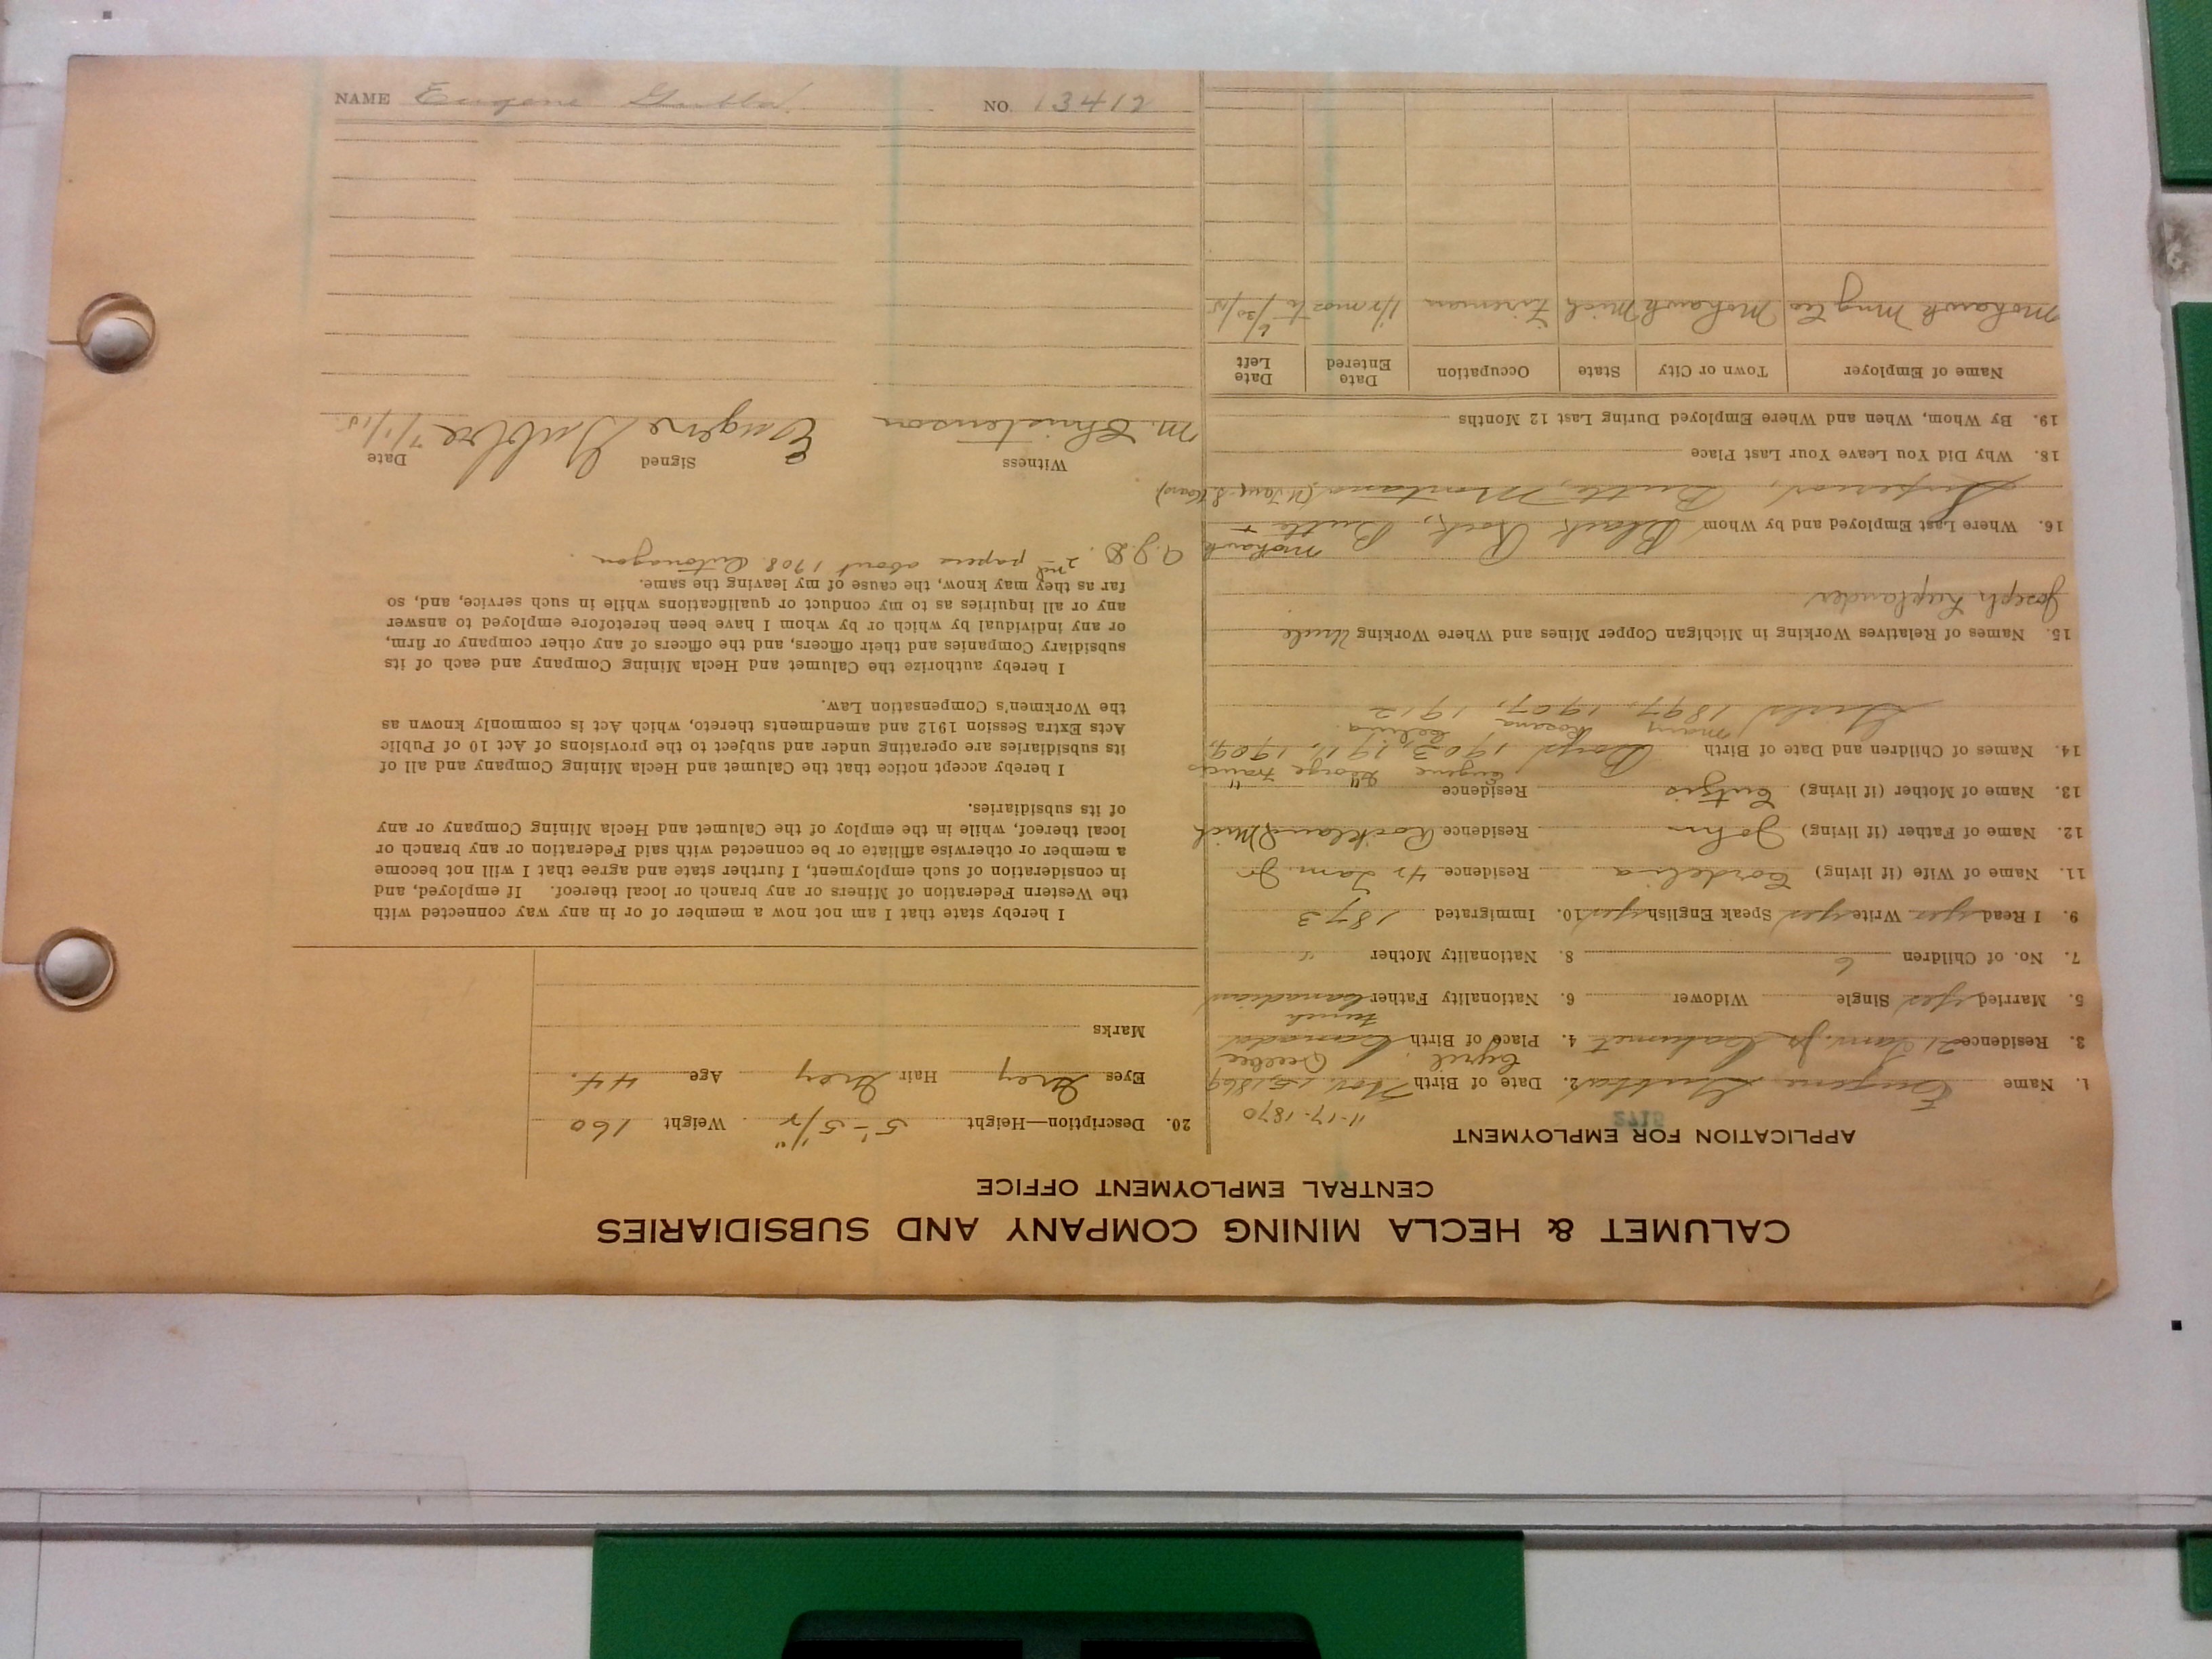 CALUMET & HECLA MINING COMPANY AND SUBSIDIARIES
CENTRAL EMPLOYMENT OFFICE
APPLICATION FOR EMPLOYMENT
2715
11-17-1870
1. Name Eugene 2. Date of Birth Nov. 15, 1869
Cyril Quebec
3. Residence Tam. Jr. Calumet 4. Place of Birth Canada
French
5. Married yes Single Widower 6. Nationality Father Canadian
7. No. of Children 6 8. Nationality Mother "
9. I Read yes Write yes Speak English yes 10. Immigrated 1873
11. Name of Wife (if living) Cordelia Residence Tam. Jr.
12. Name of Father (if living) John Residence Rockland Mich
13. Name of Mother (if living) Residence " "
Eugene George Francis
14. Names of Children and Date of Birth Boys 1903, 1911, 1909,
Mary Rosanna
Girls 1897, 1907, 1912
15. Names of Relatives Working in Michigan Copper Mines and Where Working Uncle
Joseph
Mohawk
16. Where Last Employed and by Whom Black Rock, Butte +
Superior, Butte, Montana,
18. Why Did You Leave Your Last Place
19. By Whom, When and Where Employed During Last 12 Months
Name of Employer Town or City State Occupation Date Entered Date Left
Mohawk Mng Co Mohawk Mich Fireman 1/2 mos to 6/30/15
20. Description—Height 5'-5 1/2" Weight 160
Eyes Grey Hair Grey Age 44.
Marks
I hereby state that I am not now a member of or in any way connected with
the Western Federation of Miners or any branch or local thereof. If employed, and
in consideration of such employment, I further state and agree that I will not become
a member or otherwise affiliate or be connected with said Federation or any branch or
local thereof, while in the employ of the Calumet and Hecla Mining Company or any
of its subsidiaries.
I hereby accept notice that the Calumet and Hecla Mining Company and all of
its subsidiaries are operating under and subject to the provisions of Act 10 of Public
Acts Extra Session 1912 and amendments thereto, which Act is commonly known as
the Workmen's Compensation Law.
I hereby authorize the Calumet and Hecla Mining Company and each of its
subsidiary Companies and their officers, and the officers of any other company or firm,
or any individual by which or by whom I have been heretofore employed to answer
any or all inquiries as to my conduct or qualifications while in such service, and, so
far as they may know, the cause of my leaving the same.
2nd papers about 1908 Ontonagon.
Witness Signed Date
M. Christenson Eugene 7/1/15.
NAME Eugene NO. 13412